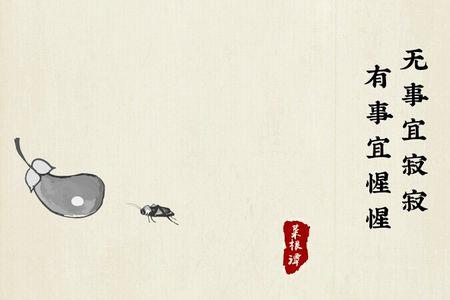 无事宜寂寂
有事宜惺惺
菜根谭